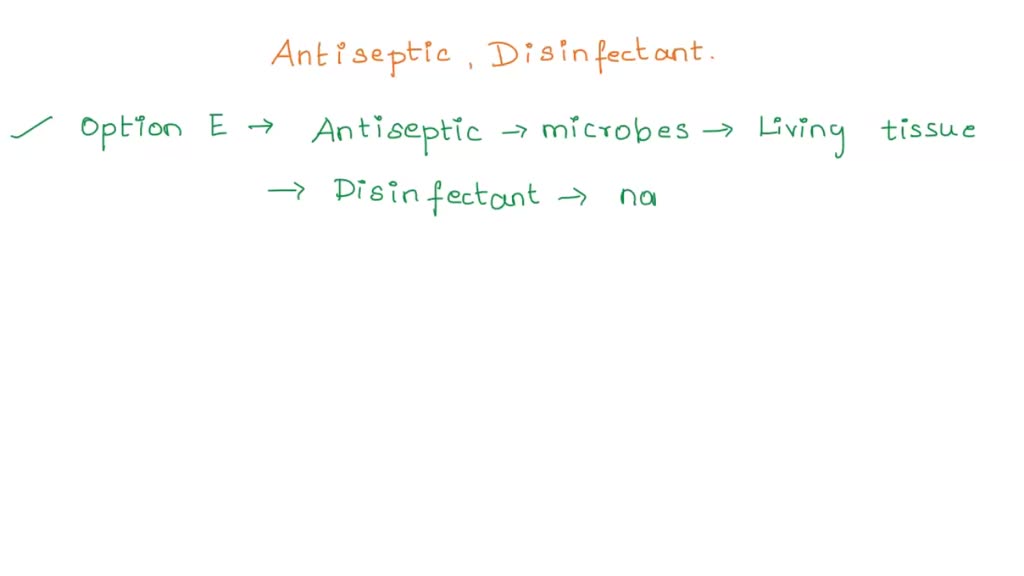 Antiseptic, Disinfectant.
✓ Option E → Antiseptic → microbes → Living tissue
→ Disinfectant → na